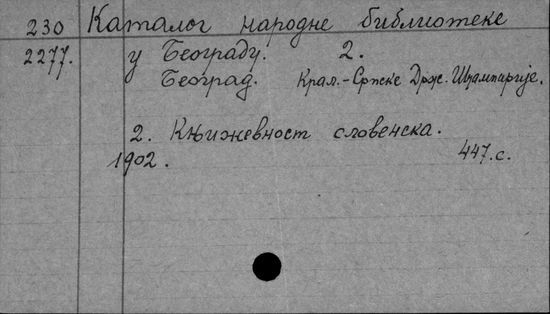 230 Каталог народне библиотеке
2277. у Београду. 2.
Београд. Краљ.-Српске Држ. Штампарије.
2. Књижевност словенска.
1902. 447.с.